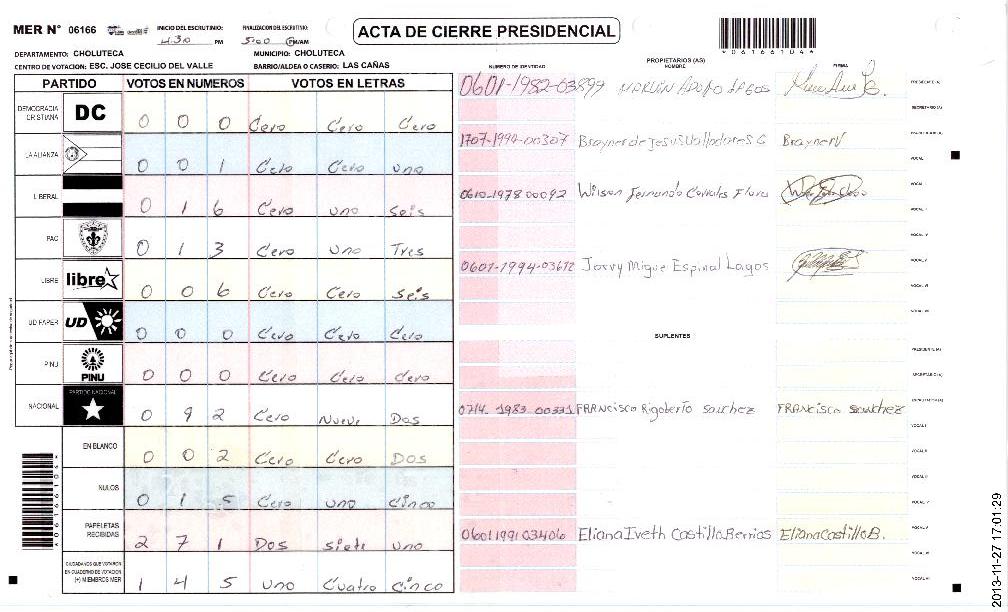 MER N° 06166
INICIO DEL ESCRUTINIO:
4:30 PM
FINALIZACION DEL ESCRUTINIO:
5:00 AM/PM
ACTA DE CIERRE PRESIDENCIAL
*061661044*
DEPARTAMENTO: CHOLUTECA
MUNICIPIO: CHOLUTECA
CENTRO DE VOTACION: ESC. JOSE CECILIO DEL VALLE
BARRIO/ALDEA O CASERIO: LAS CAÑAS
PARTIDO VOTOS EN NUMEROS VOTOS EN LETRAS
DEMOCRACIA CRISTIANA DC 0 0 0 Cero Cero Cero
LA ALIANZA 0 0 1 Cero Cero uno
LIBERAL 0 1 6 Cero uno Seis
PAC 0 1 3 Cero uno Tres
LIBRE libre 0 0 6 Cero Cero Seis
UD FAPER UD 0 0 0 Cero Cero Cero
PINU PINU 0 0 0 Cero Cero Cero
NACIONAL PARTIDO NACIONAL 0 9 2 Cero Nueve Dos
EN BLANCO 0 0 2 Cero Cero Dos
NULOS 0 1 5 Cero uno Cinco
PAPELETAS RECIBIDAS 2 7 1 Dos siete uno
CIUDADANOS QUE VOTARON EN CUADERNO DE VOTACION (+) MIEMBROS MER 1 4 5 uno Cuatro cinco
NUMERO DE IDENTIDAD
PROPIETARIOS (AS)
NOMBRE
FIRMA
0601-1982-03899 MARLON ADOLFO LAGOS
PRESIDENTE (A)
SECRETARIO (A)
1707-1994-00307 Brayner de Jesus Valladares G Brayner V
VOCAL
0610-1978 00092 Wilson Fernando Corrales Flores
VOCAL
0601-1994-03612 Jorry Migue Espinal Lagos
SUPLENTES
PRESIDENTE (A)
SECRETARIO (A)
0714 1983 00331 FRANCISCO Rigoberto sanchez FRANCISCO sanchez
0601 1991 03406 Eliana Iveth Castillo Berrios Eliana Castillo B.
2013-11-27 17:01:29